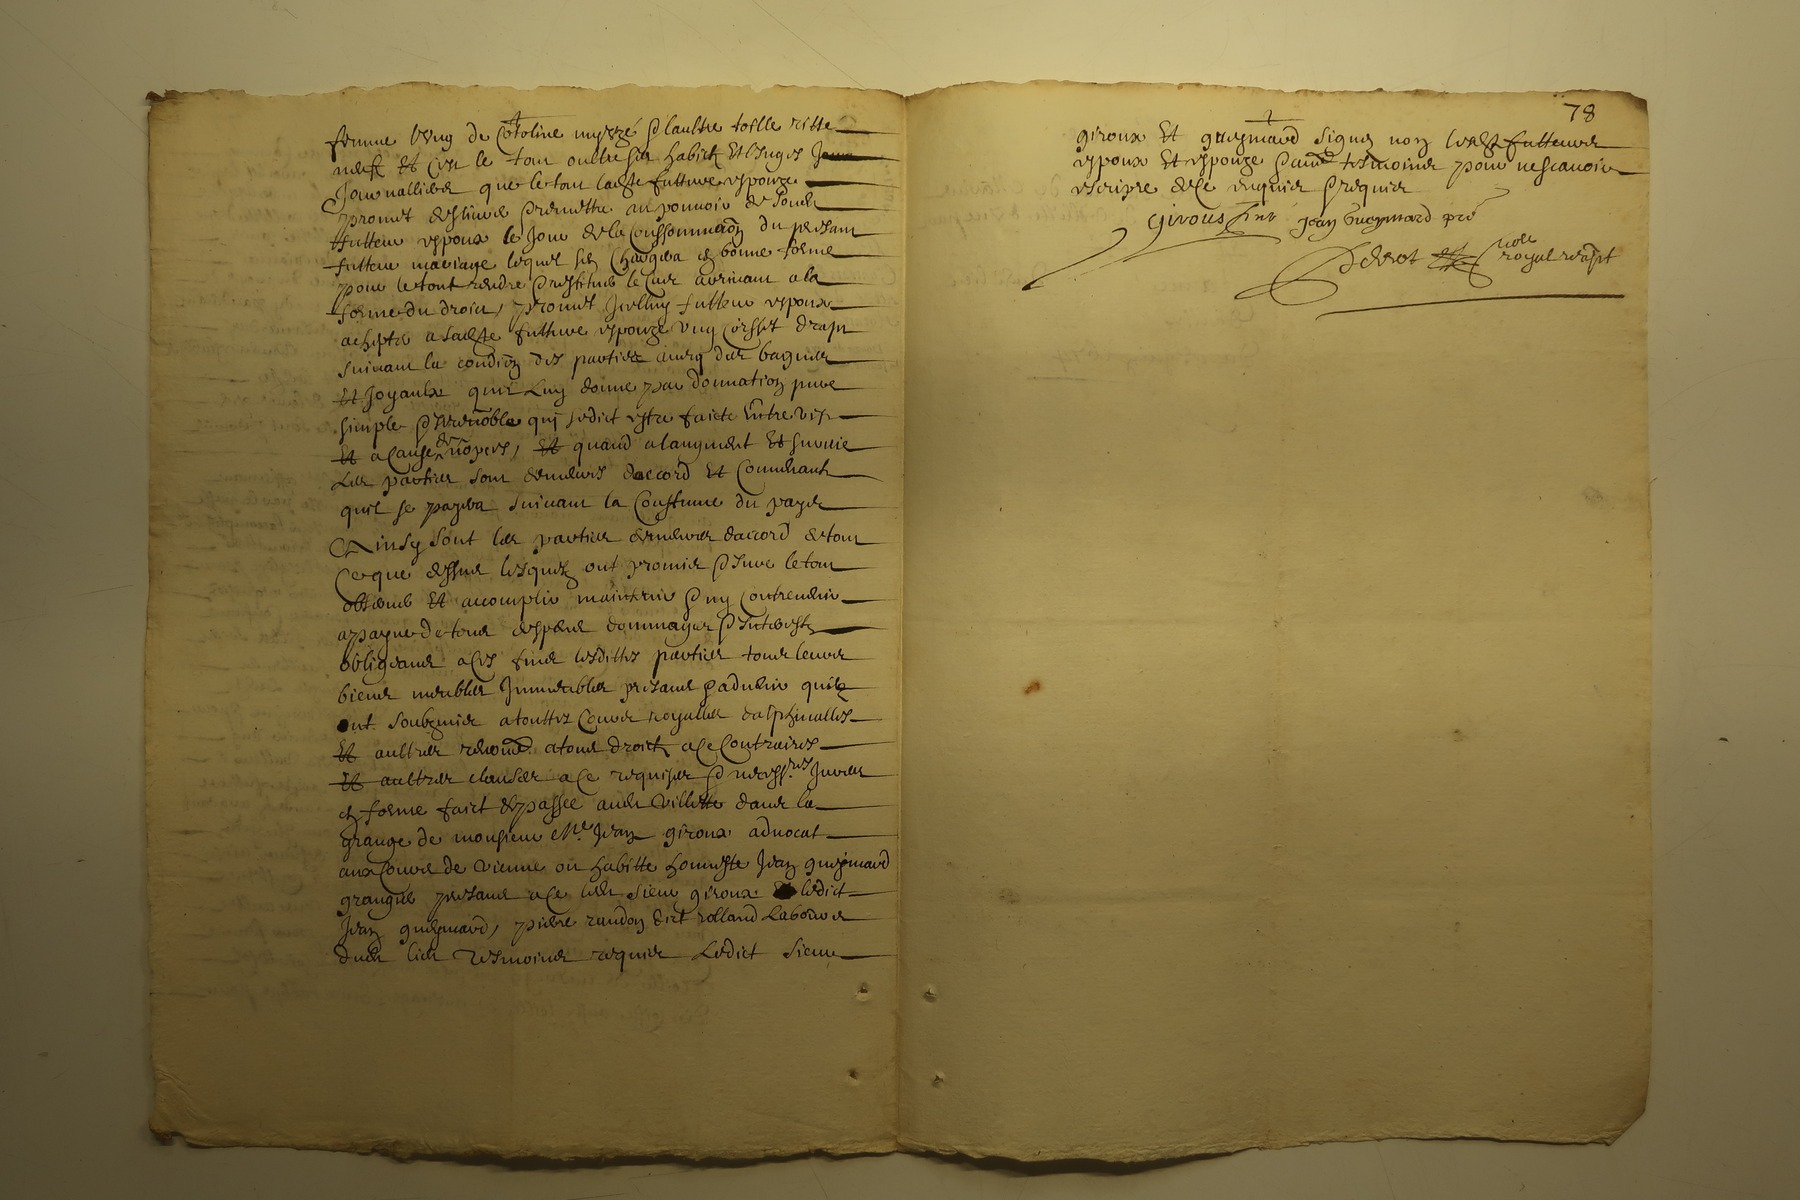 femme lung de Cotoline myzzé & laultre toille ritte
neufz Et c'est le tout oultre ses habitz Et linges
Journalliers que le tout ladte future espouze
promet deslivrer & remettre au pouvoir de sondt
futteur espoux le Jour de la Conssommaon du present
futteur mariage lequel sen Chargera en bonne forme
pour le tout rendre & restituer le Cas advenant a la
forme du droict, promet Icelluy futteur espoux
achepter a sadte future espouze ung corsset drapt
suivant la condion des parties avecq des bagues
Et Joyaulx quil Luy donne par donnation pure
simple & irrevoble qui se dict estre faicte Entre vifz
Et a cause de nopces, Et quand a laugment Et survie
Les parties sont demeures daccord Et Convenantz
quil se payera suivant la Coustume du pays
Ainsy sont les parties demeures daccord de tout
Ce que dessus lesquelz ont promis & Jure le tout
observer Et accomplir maintenir & ny contrevenir
a payne de tous despens dommages & Interestz
obligeants a ces fins lesdittes parties tous leurs
biens meubles Immeubles presans & advenir quilz
ont soubzmis a touttes Cours royalles dalphinalles
Et aultres renoncé a tous droictz a Ce Contraires
Et aultres clauses a ce requises & necessres Jurees
en forme faict & passée audt Villette dans la
grange de monsieur Me Jean giroux advocat
aux Cours de Vienne ou habitte honneste Jean gueymard
granger presans a Ce ledt sieur giroux Et ledict
Jean gueymard, pierre randon dict rolland Laboureur
dudt lieu Tesmoins requis Ledict sieur
78
giroux Et gueymard signes non lesdt futteurs
espoux Et espouze & autre tesmoins pour ne scavoir
escripre de Ce enquis & requis
Girous pnt Jean Gueymard pnt
Perrot nore
royal reapt